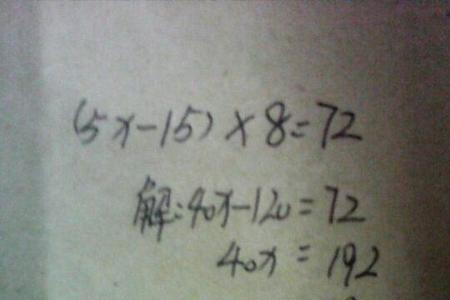 (5x-15)×8=72
解:40x-120=72
40x=192